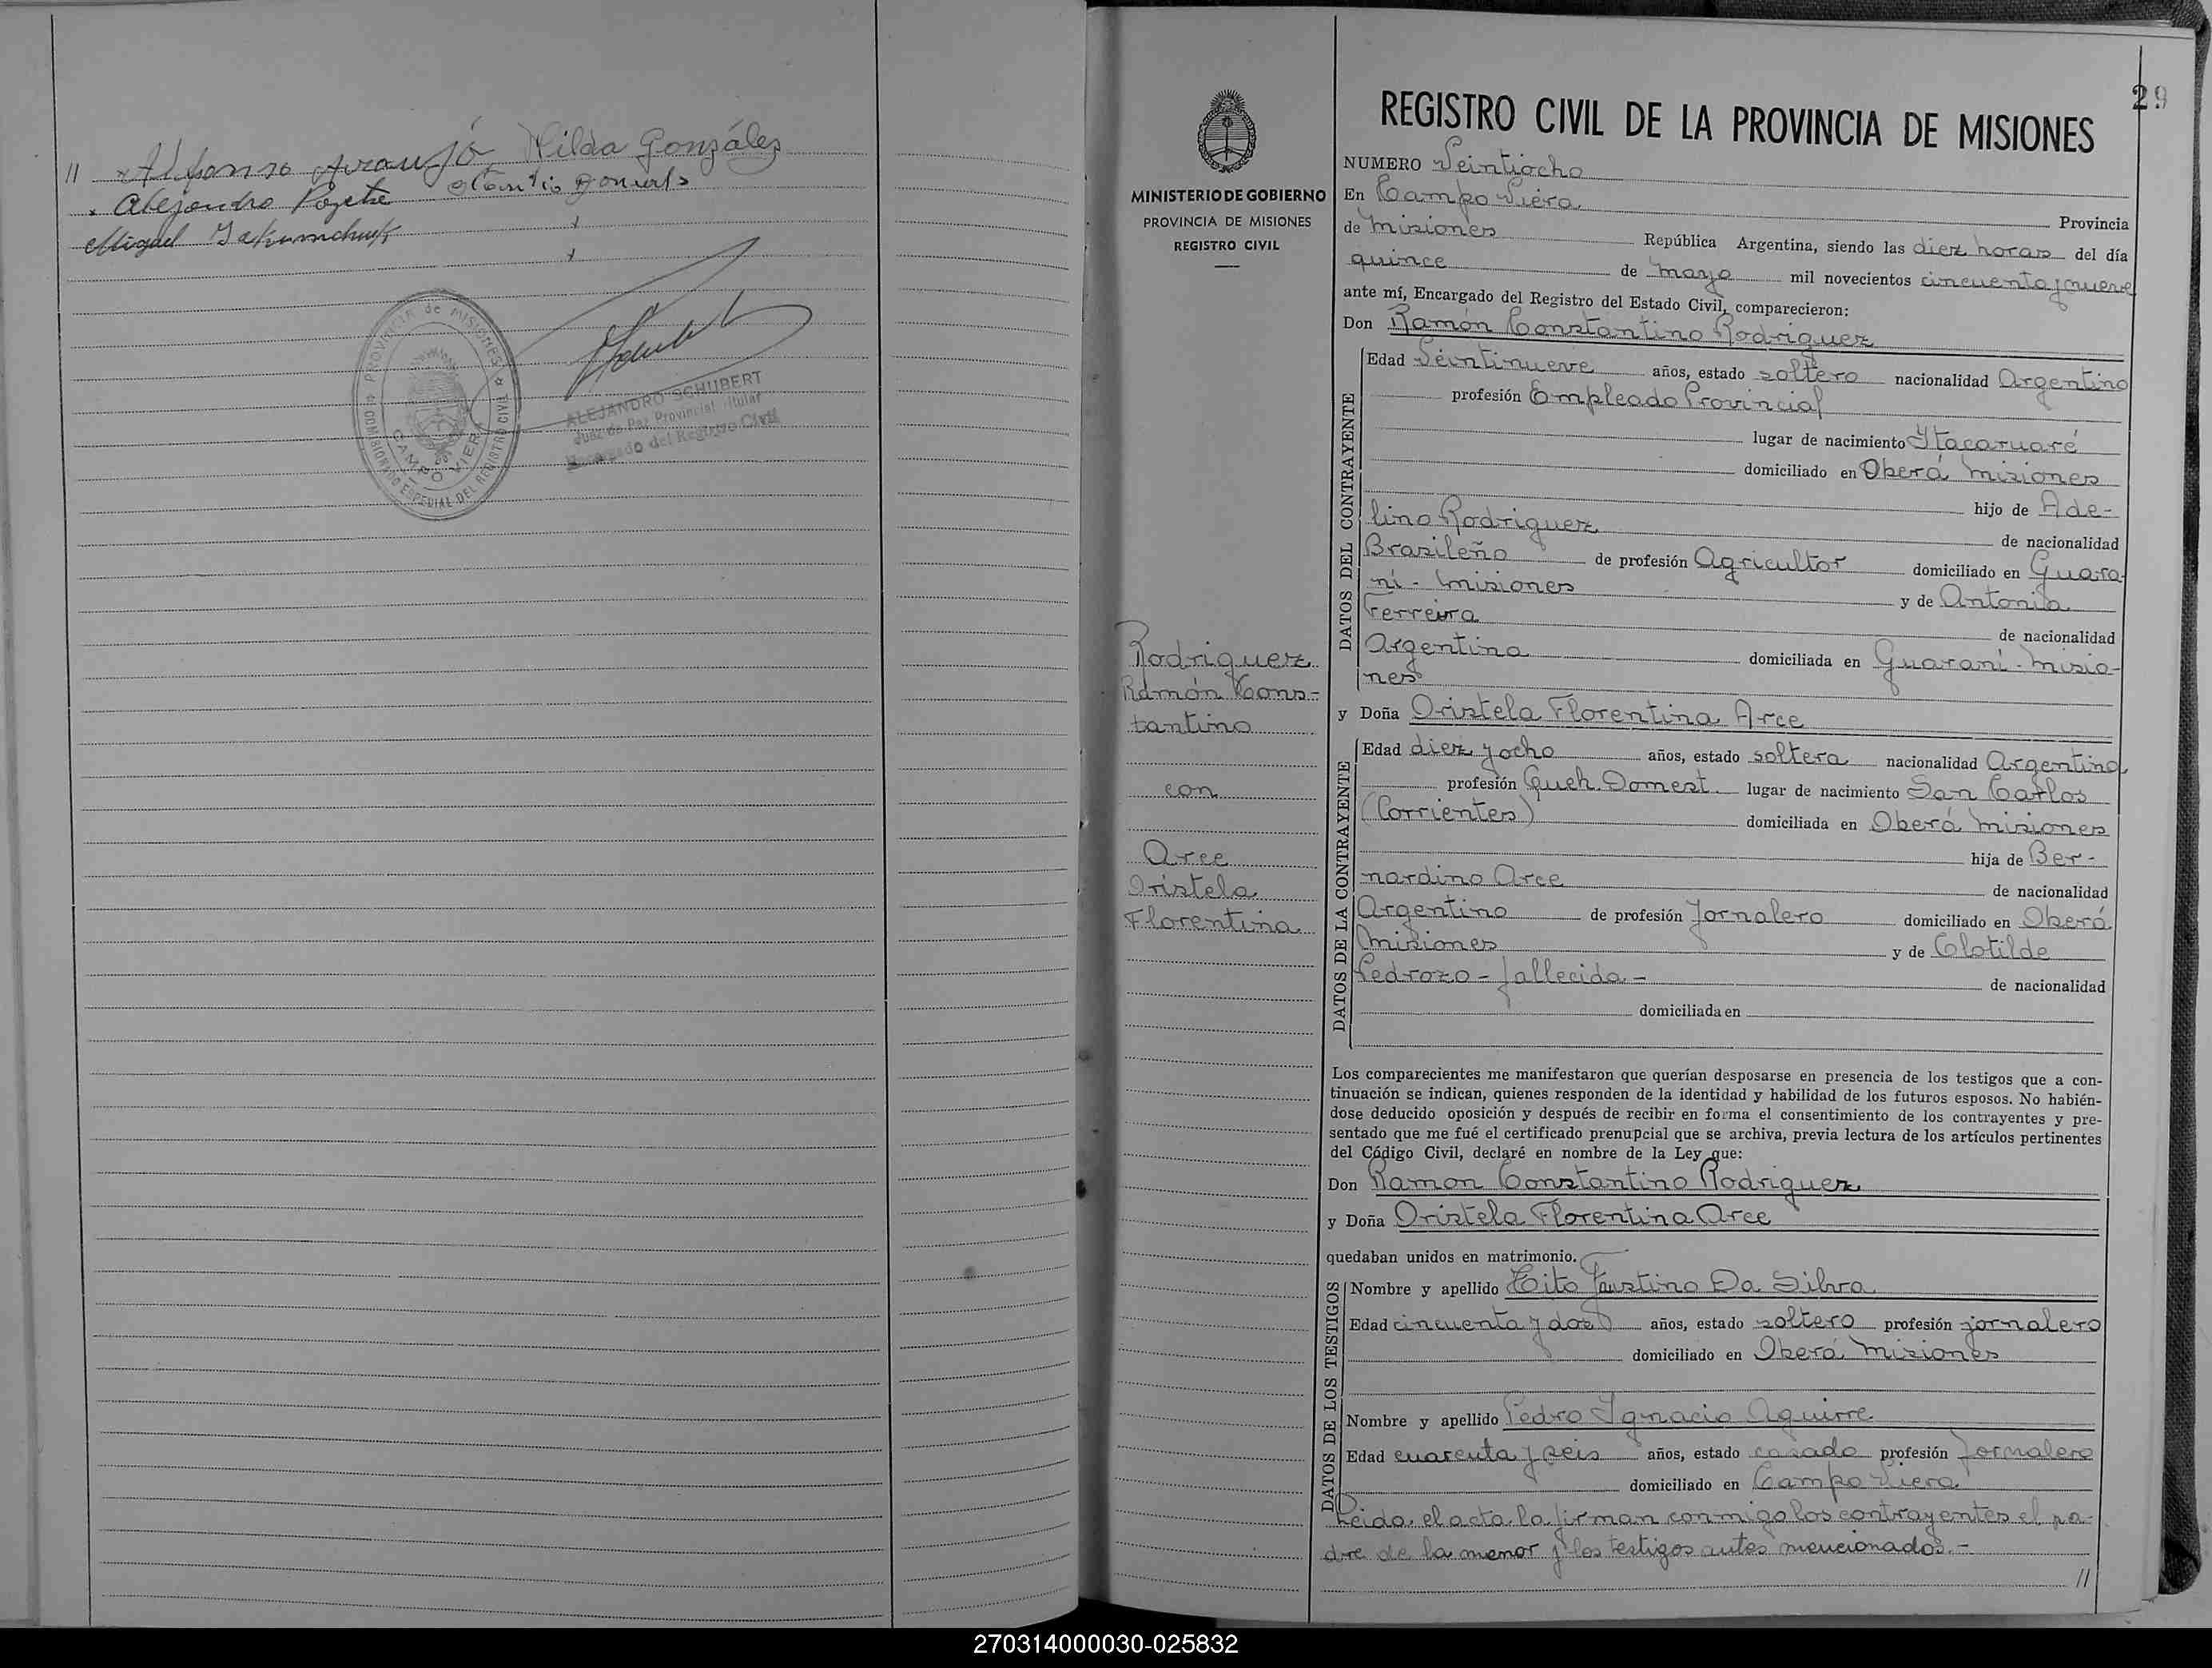 // Alfonso Araujó Hilda González
Alejandro
Miguel
PROVINCIA de MISIONES
CAMPO VIERA
ESPECIAL DEL REGISTRO CIVIL
ALEJANDRO SCHUBERT
Juez de Paz Provincial Titular
Encargado del Registro Civil
29
MINISTERIO DE GOBIERNO
PROVINCIA DE MISIONES
REGISTRO CIVIL
Rodriguez
Ramón Cons-
tantino
con
Arce
Oristela
Florentina
REGISTRO CIVIL DE LA PROVINCIA DE MISIONES
NUMERO Veintiocho
En Campo Viera Provincia
de Misiones República Argentina, siendo las diez horas del día
quince de mayo mil novecientos cincuenta y nueve
ante mí, Encargado del Registro del Estado Civil, comparecieron:
Don Ramón Constantino Rodriguez
DATOS DEL CONTRAYENTE
Edad Veintinueve años, estado soltero nacionalidad Argentino
profesión Empleado Provincial
lugar de nacimiento Itacaruaré
domiciliado en Oberá Misiones
hijo de Ade-
lino Rodriguez de nacionalidad
Brasileño de profesión Agricultor domiciliado en Guara-
ní - Misiones y de Antonia
Ferreira de nacionalidad
Argentina domiciliada en Guaraní - Misio-
nes
y Doña Oristela Florentina Arce
DATOS DE LA CONTRAYENTE
Edad diez y ocho años, estado soltera nacionalidad Argentina
profesión Queh. Domest. lugar de nacimiento San Carlos
(Corrientes) domiciliada en Oberá Misiones
hija de Ber-
nardino Arce de nacionalidad
Argentino de profesión Jornalero domiciliado en Oberá
Misiones y de Clotilde
Pedrozo - fallecida - de nacionalidad
domiciliada en
Los comparecientes me manifestaron que querían desposarse en presencia de los testigos que a con-
tinuación se indican, quienes responden de la identidad y habilidad de los futuros esposos. No habién-
dose deducido oposición y después de recibir en forma el consentimiento de los contrayentes y pre-
sentado que me fué el certificado prenupcial que se archiva, previa lectura de los artículos pertinentes
del Código Civil, declaré en nombre de la Ley que:
Don Ramon Constantino Rodriguez
y Doña Oristela Florentina Arce
quedaban unidos en matrimonio.
DATOS DE LOS TESTIGOS
Nombre y apellido Tito Faustino Da Silva
Edad cincuenta y dos años, estado soltero profesión jornalero
domiciliado en Oberá Misiones
Nombre y apellido Pedro Ignacio Aguirre
Edad cuarenta y seis años, estado casado profesión Jornalero
domiciliado en Campo Viera
Leida el acta la firman conmigo los contrayentes el pa-
dre de la menor y los testigos antes mencionados. -
//
270314000030-025832